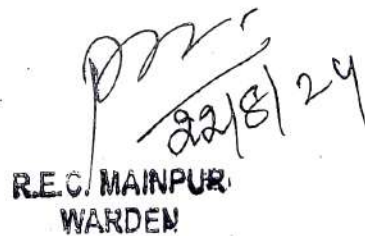 22/8/24
R.E.C. MAINPURI
WARDEN